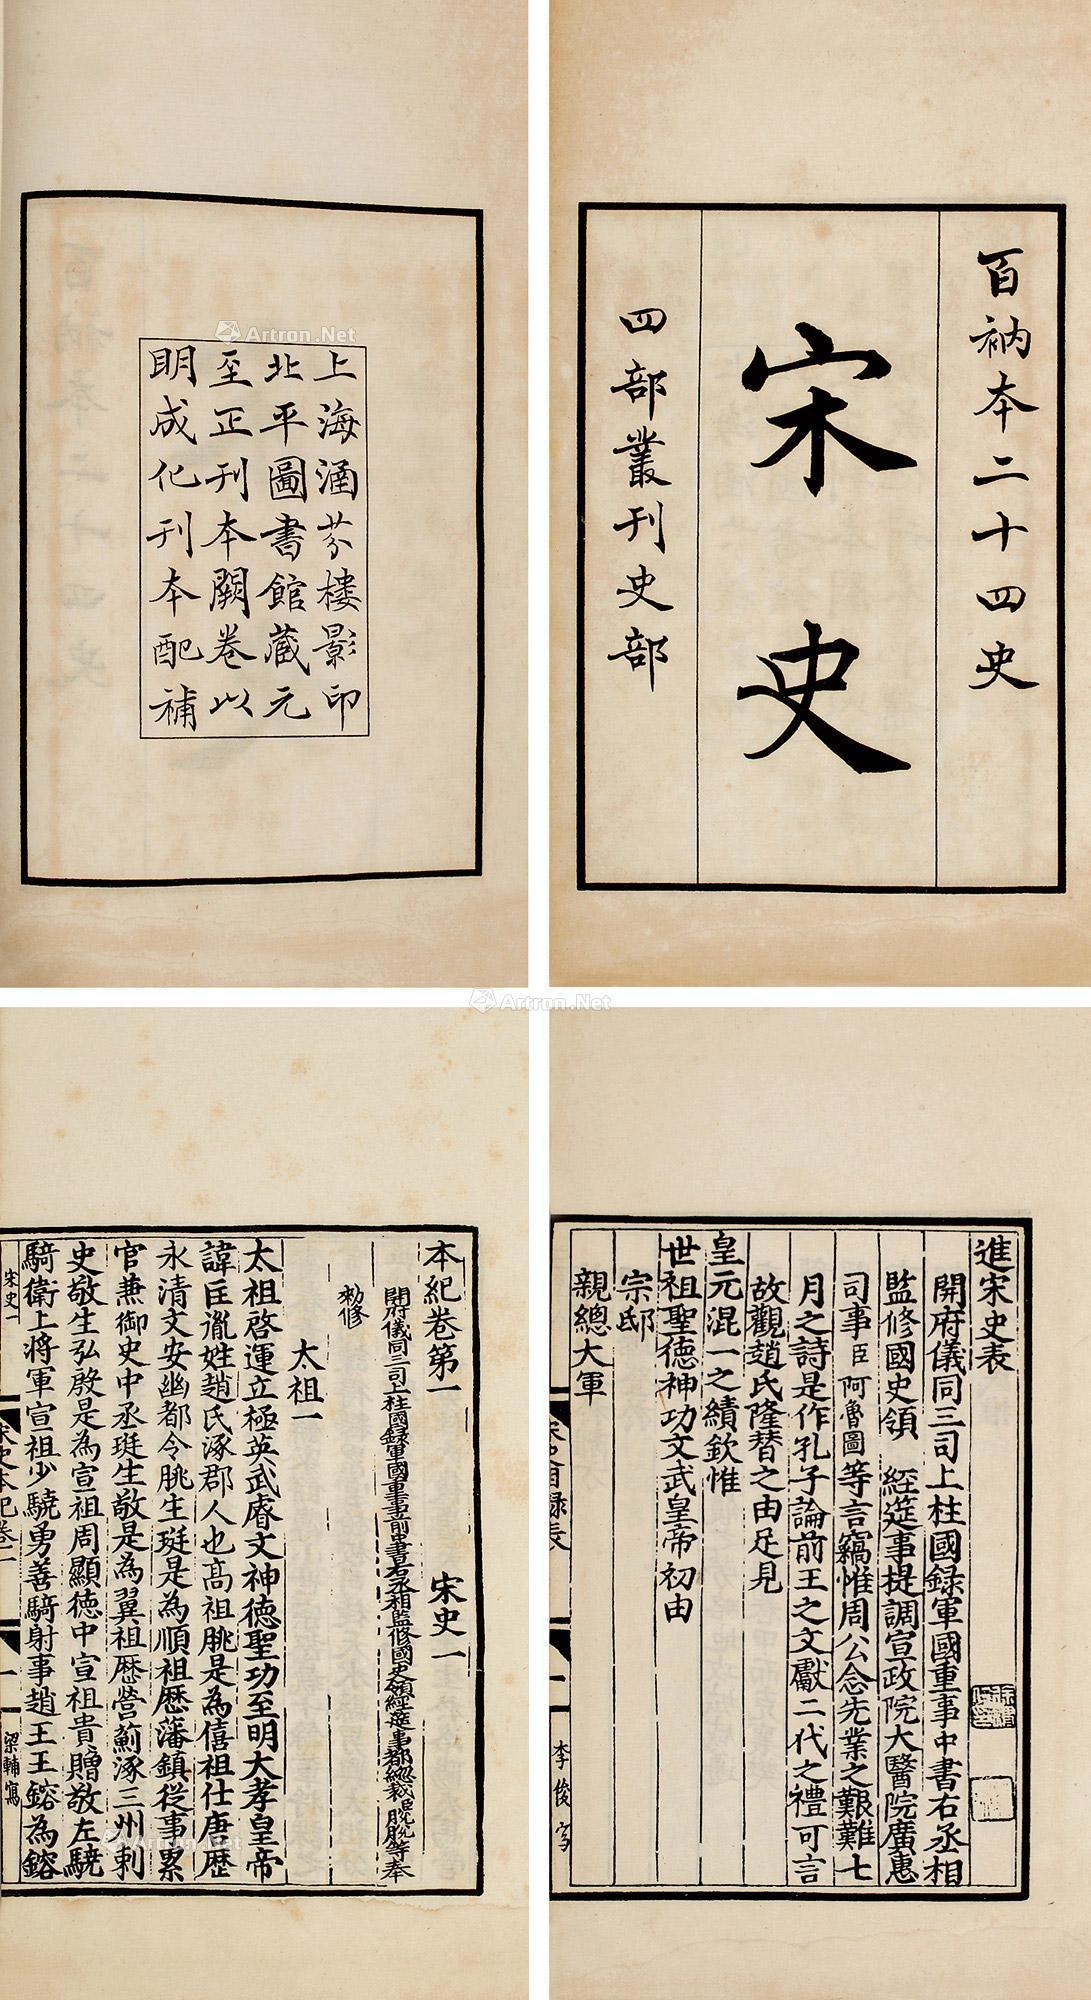 百衲本二十四史
宋史
四部叢刊史部
上海涵芬樓影印
北平圖書館藏元
至正刊本闕卷以
明成化刊本配補
進宋史表
開府儀同三司上柱國録軍國重事中書右丞相
監修國史領 經筵事提調宣政院大醫院廣惠
司事臣阿魯圖等言竊惟周公念先業之艱難七
月之詩是作孔子論前王之文獻二代之禮可言
故觀趙氏隆替之由足見
皇元混一之績欽惟
世祖聖德神功文武皇帝初由
宗邸
親總大軍
李俊寫
本紀卷第一 宋史一
開府儀同三司上柱國録軍國重事前中書右丞相監修國史領經筵事都總裁臣脫脫等奉
勑修
太祖一
太祖啓運立極英武睿文神德聖功至明大孝皇帝
諱匡胤姓趙氏涿郡人也高祖朓是為僖祖仕唐歷
永清文安幽都令朓生珽是為順祖歷藩鎮從事累
官兼御史中丞珽生敬是為翼祖歷營薊涿三州刺
史敬生弘殷是為宣祖周顯德中宣祖貴贈敬左驍
騎衛上將軍宣祖少驍勇善騎射事趙王王鎔為鎔
宋史一
宋史本紀卷一
一
梁輔寫
Artron.Net
Artron.Net
Artron.Net
Artron.Net
Artron.Net